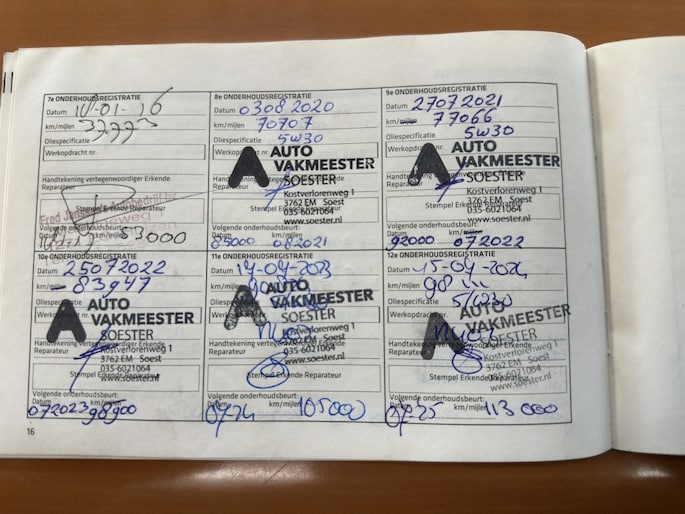 7e ONDERHOUDSREGISTRATIE
Datum 10-01-16
km/mijlen 37773
Oliespecificatie
Werkopdracht nr.
Handtekening vertegenwoordiger Erkende
Reparateur
Stempel Erkende Reparateur
Volgende onderhoudsbeurt:
Datum km/mijlen
53000
8e ONDERHOUDSREGISTRATIE
Datum 03082020
km/mijlen 70707
Oliespecificatie 5W30
Werkopdracht nr.
AUTO
VAKMEESTER
SOESTER
Handtekening vertegenwoordiger
Reparateur
Kostverlorenweg 1
3762 EM Soest
035-6021064
www.soester.nl
Stempel Erkende
Volgende onderhoudsbeurt:
Datum
85000 082021
9e ONDERHOUDSREGISTRATIE
Datum 27072021
km/mijlen 77066
Oliespecificatie 5W30
Werkopdracht nr.
AUTO
VAKMEESTER
SOESTER
Handtekening vertegenwoordiger
Reparateur
Kostverlorenweg 1
3762 EM Soest
035-6021064
www.soester.nl
Stempel Erkende
Volgende onderhoudsbeurt:
Datum km/mijlen
92000 072022
10e ONDERHOUDSREGISTRATIE
Datum 25072022
83947
Oliespecificatie
AUTO
VAKMEESTER
SOESTER
Handtekening
Reparateur
Kostverlorenweg 1
3762 EM Soest
035-6021064
www.soester.nl
Volgende onderhoudsbeurt:
Datum km/mijlen
072023 98900
11e ONDERHOUDSREGISTRATIE
Datum 14-04-2023
km/mijlen
Oliespecificatie
AUTO
VAKMEESTER
SOESTER
Handtekening
Reparateur
Kostverlorenweg 1
3762 EM Soest
035-6021064
www.soester.nl
Stempel Erkende Reparateur
Volgende onderhoudsbeurt:
Datum km/mijlen
07-24 105000
12e ONDERHOUDSREGISTRATIE
Datum 15-04-2024
km/mijlen 98
Oliespecificatie
Werkopdracht
AUTO
VAKMEESTER
SOESTER
Handtekening vertegenwoordiger Erkende
Reparateur
Kostverlorenweg 1
3762 EM Soest
035-6021064
www.soester.nl
Stempel Erkende Reparateur
Volgende onderhoudsbeurt:
Datum km/mijlen
07-25 113 000
16